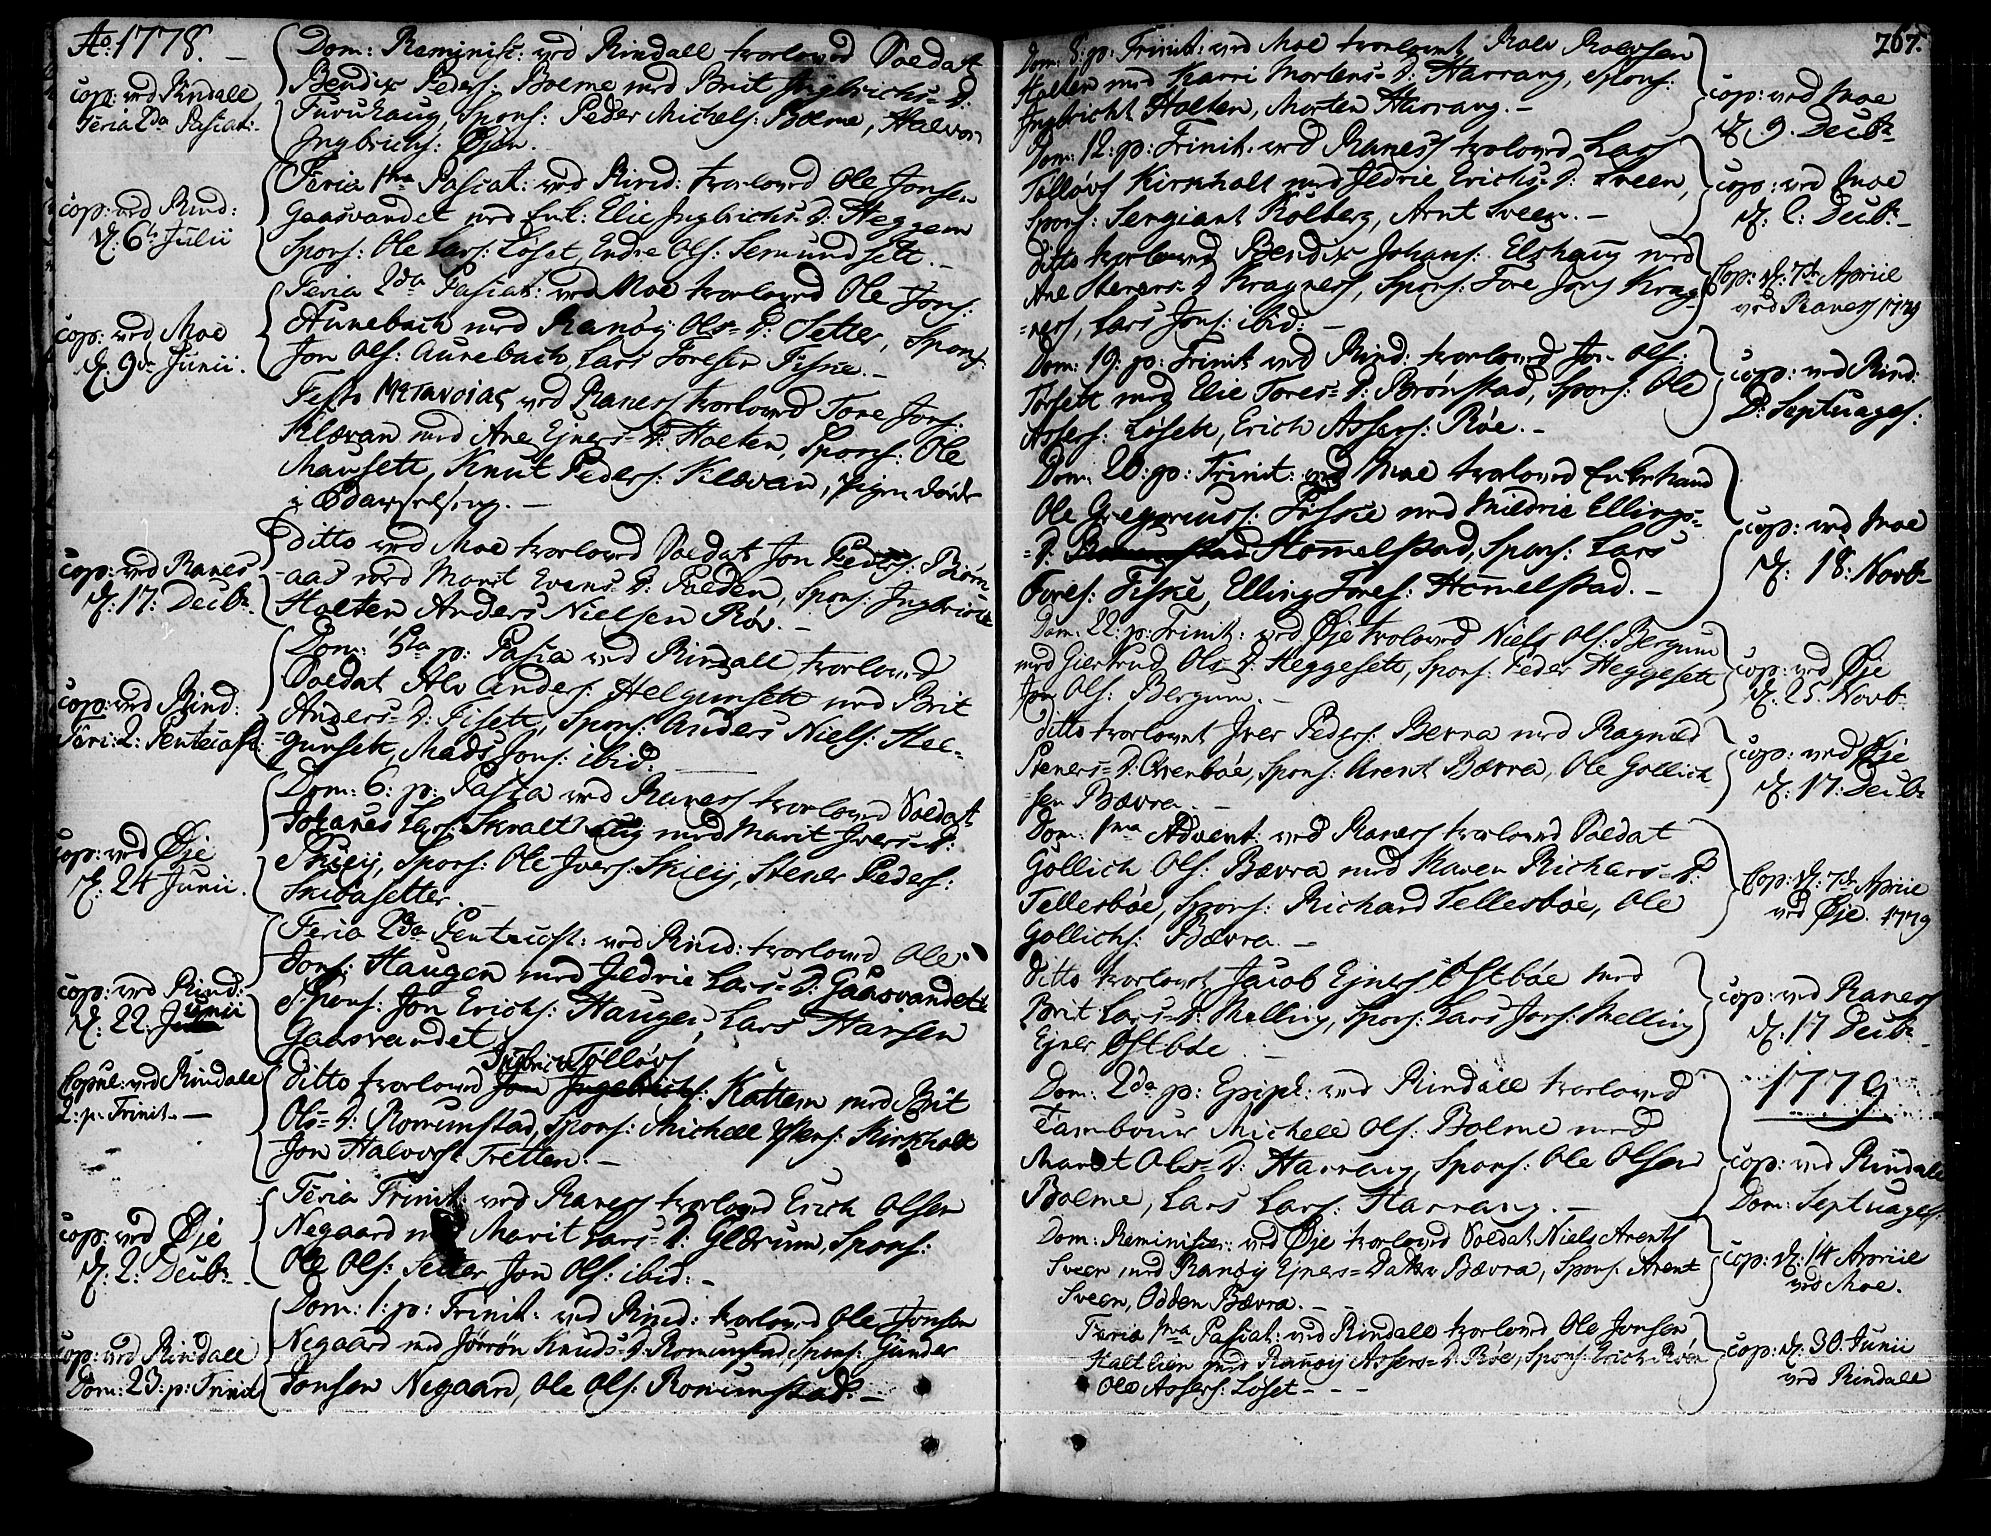 Ao: 1778. –
Dom: Reminisc: ved Rindall trolowed Soldat
Bendix Peders: Bolme med Brit Ingbrichs=D:
Furuhaug, Spons: Peder Michels: Bolme, Halvor
Ingbrichs: Øjen.
cop: ved Rindall
Feria 2da Pascat:
Feria 1ma Pascat: ved Rind: trolowed Ole Jonsen
Gaasvandet med Enk: Elie Ingbrichs=D: Heggem
Spons: Ole Lars: Løset, Endre Ols: Semundsett. –
cop: ved Rind:
d: 6te Julii
Feria 2da Pascat: ved Moe trolowed Ole Jons:
Aunebach med Ranøj Ols=D: Setter, Spons:
Jon Ols: Aunebach, Lars Toresen Fiske. –
cop: ved Moe
d. 9de Junii.
Festo Μετανοίας ved Raness trolowed Tore Jons:
Klævan med Ane Ejners=D: Holten, Spons: Ole
Mausett, Knut Peders: Klævan,
ditto ved Moe trolowed Soldat Jon Peders: Biørn-
-aas med Marit Evens=D: Polden, Spons: Ingbricht
Holten Anders Nielsen Røv. –
cop: ved Ranes
d: 17: Decbr
Dom: 5ta p: Pascha ved Rindall trolowed
Soldat Alv Anders: Helgunsett med Brit
Anders=D: Fisett, Spons: Anders Niels: Hel-
=gunsett, Mads Jons: ibid.
cop: ved Rind:
Feri: 2: Pentecost:
Dom: 6: p: Pascha ved Raness trolowed Soldat
Johanes Lars: Skralt med Marit Ivers=D:
Skieij, Spons: Ole Ivers: Skieij, Stener Peders:
Skibasetter. –
cop: ved Øje
d. 24 Junii.
Feria 2da Pentecost: ved Rind: trolowed Ole
Jons: Haugen med Jldrie Lars=D: Gaasvandet
Spons: Jon Erichs: Haugen, Lars Hansen
Gaasvandet.
cop: ved Rind:
d. 22. Junii
Ingbricht Tolløvs
ditto trolowed Jon Ingebrichs: Kattem med Brit
Ols=D: Romunstad, Spons: Michell Kirkholt
Jon Halvors: Tretten. –
Copul: ved Rindall
2: p: Trinit. –
Feria Trinit: ved Raness trolowed Erich Olsen
Negaard med Marit Lars=D: Glærum, Spons:
Ole Ols: Setter, Jon Ols: ibid: –
cop: ved Øje
d. 2: Decbr –
Dom: 1: p: Trinit: ved Rind: trolowed Ole Jonsen
Negaard med Jörrön Knuds=D: Romunstad, Spons: Gunder
Jonsen Negaard, Ole Ols: Romunstad. –
cop: ved Rindall
Dom: 23: p: Trinit
767.
Dom: 8: p: Trinit: ved Moe trolowed Rolv Rolvsen
Holten med Karri Mortens=D: Harrang, Spons:
Ingbricht Holten, Morten Harrang. –
cop: ved Moe
d. 9. Decbr
Dom: 12: p: Trinit: ved Raness trolowed Lars
Tolløvs Kirkholt med Jldrie Erichs=D: Sveen,
Spons: Sergiant Kolberg, Arnt Sveen. –
cop: ved Moe
d. 2: Decbr –
ditto trolowed Bendix Johans: Elshaug med
Ane Steners=D: Kragness, Spons: Tore Jons Krag-
=ness, Lars Jons: ibid: –
Cop: d. 7de Apriil
ved Raness 1779
Dom: 19: p: Trinit ved Rind: trolowed Jon Ols:
Torsett med Elie Tores=D: Brønstad, Spons: Ole
Assers: Løsett, Erich Assers: Røe. –
cop: ved Rind:
D: Septuages:
Dom: 20: p: Trinit: ved Moe trolowed Enkemand
Ole Gregoreuss: Fiske med Mildrie Ellings-
=D: Homelstad, Spons: Lars
Tores: Fiske, Elling Tores: Homelstad. –
cop: ved Moe
d. 18: Novbr
Dom: 22: p: Trinit: ved Øje trolowed Niels Ols: Bergum
med Giertrud Ols=D: Heggesett, Spons: Peder Heggesett
Jon Ols: Bergum. –
cop: ved Øje
d. 25. Novbr
ditto trolowet Iver Peders: Berra med Ragnild
Steners=D: Qvenbøe, Spons: Arent Bævra, Ole Gollich
sen Bævra. –
cop: ved Øje
d: 17: Decbr
Dom: 1ma Advent: ved Raness trolowed Soldat
Gollich Ols: Bævra med Maren Richars=D:
Tellesbøe, Spons: Richard Tellesbøe, Ole
Gollichs: Bævra. –
Cop: d: 7de Apriil
ved Øje. 1779
ditto trolowet Jacob Ejners Ostbøe med
Brit Lars=D: Melling, Spons: Lars Jons: Melling
Ejner Ostbøe. –
cop: ved Raness
d. 17 Decbr
1779
Dom: 2da p: Epiph: ved Rindall trolowed
Tambour Michell Ols: Bolme med
Marit Ols=D: Harrang, Spons: Ole Olsen
Bolme, Lars Lars: Harrang. –
cop: ved Rindall
Dom: Septuages:
Dom: Reminiscer: ved Øje trolowed Soldat Niels Arents
Sveen med Ranøj Ejners=Datter Bævra, Spons: Arent
Sveen, Odden Bævra. –
cop: d. 14 Apriil
ved Moe.
Feria 1ma Pascat: ved Rindall trolowed Ole Jonsen
Haltlien med Ranøij Assers=D: Røe, Spons: Erich Røen
Ole Assers: Løset – – –
cop: d. 30. Junii
ved Rindall